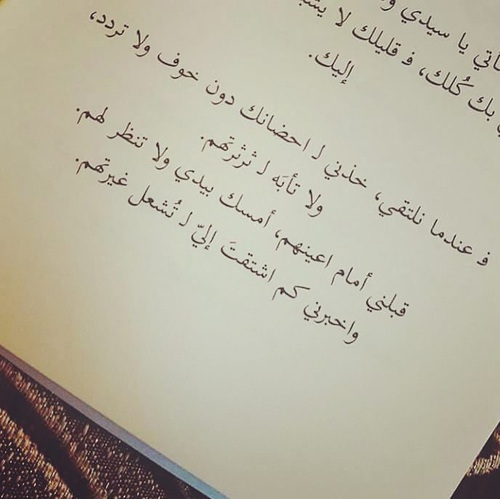 تأتي يا سيدي
بك كُلك، فـ قليلك لا
إليك.
فـ عندما نلتقي، خذني لـ احضانك دون خوف ولا تردد،
ولا تأبَه لـ ثرثرتهم.
قبلني أمام اعينهم، أمسك بيدي ولا تنظر لهم.
واخبرني كم اشتقتَ إليّ لـ تُشعل غيرتهم.